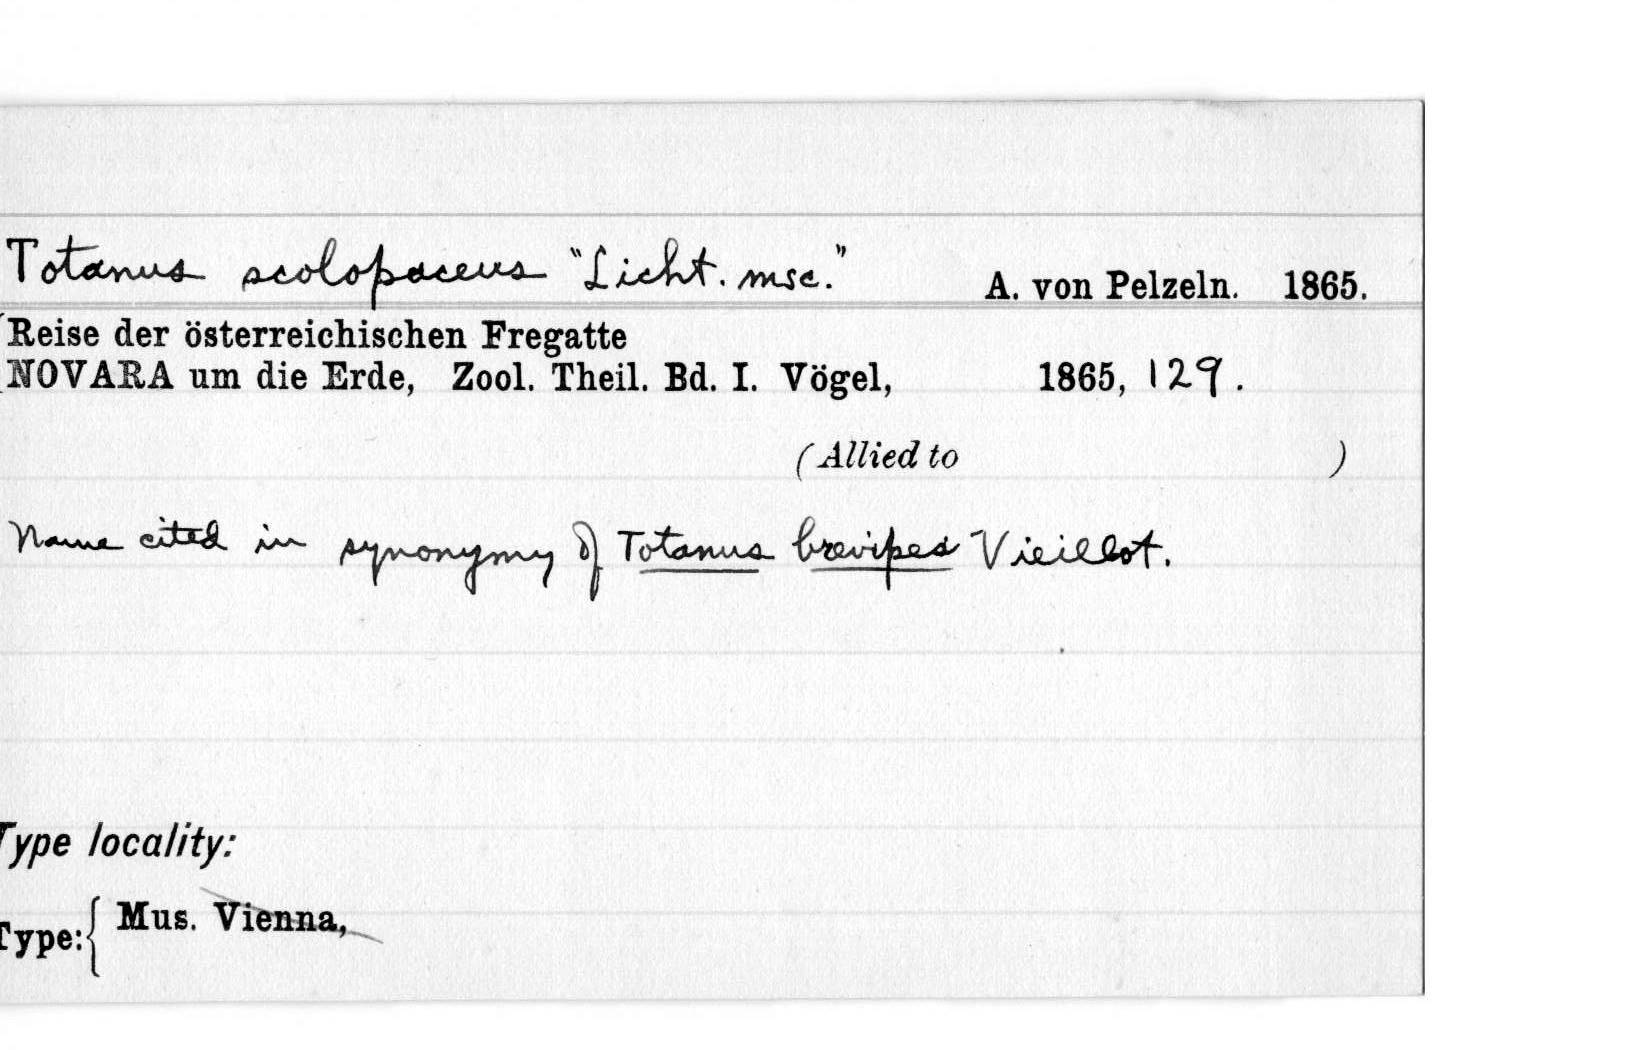 Totanus scolopaceus "Licht. msc." A. von Pelzeln. 1865.
Reise der österreichischen Fregatte
NOVARA um die Erde, Zool. Theil. Bd. I. Vögel, 1865, 129.
(Allied to )
Name cited in synonymy of Totanus brevipes Vieillot.
Type locality:
Type: { Mus. Vienna,